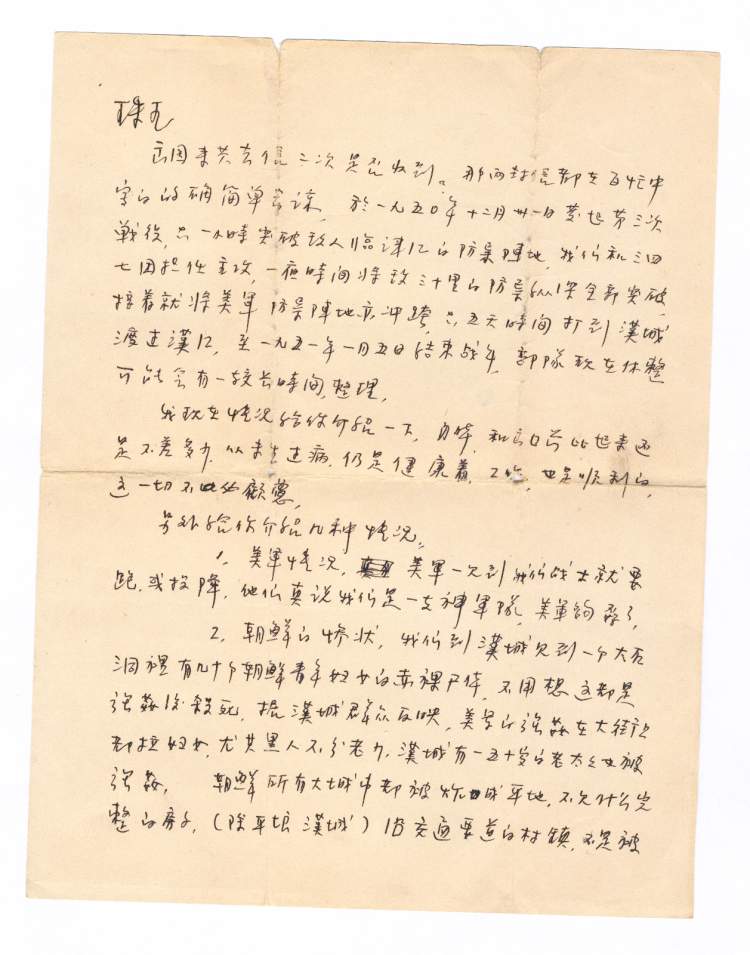 出国来共去信二次是否收到。那两封信都在百忙中
写的的确简单
於一九五〇年十二月卅一日發起第三次
戰役,只一小時突破敌人临津江的防禦陣地,我们和三四
七团担任主攻,一夜時间将敌三十里的防禦纵深全部突破,
接着就将美軍防禦陣地亦冲跨,只五天時间打到漢城
渡过漢江,至一九五一年一月五日结束战斗,部隊现在休整
可能会有一较长時间整理,
我现在情况给你介绍一下,身体,和出口前比起来还
是不差多少,从未生过病,仍是健康着,工作,也是顺利的,
这一切不必顧慮,
另外给你介绍几种情况。
1. 美軍情况,美軍一见到我们战士就要
跑,或投降,他们真说我们是一支神軍隊,美軍
2. 朝鮮的惨状,我们到漢城见到一个大石
洞裡有几十个朝鮮青年妇女的赤裸尸体,不用想这都是
强姦後殺死,据漢城群众反映,美军的强姦在大街上
都拉妇女,尤其黑人不分老少,漢城有一五十岁的老太太也被
强姦, 朝鮮所有大城市都被炸成平地,不见什么完
整的房子,(除平垠漢城)沿交通要道的村镇,不是被